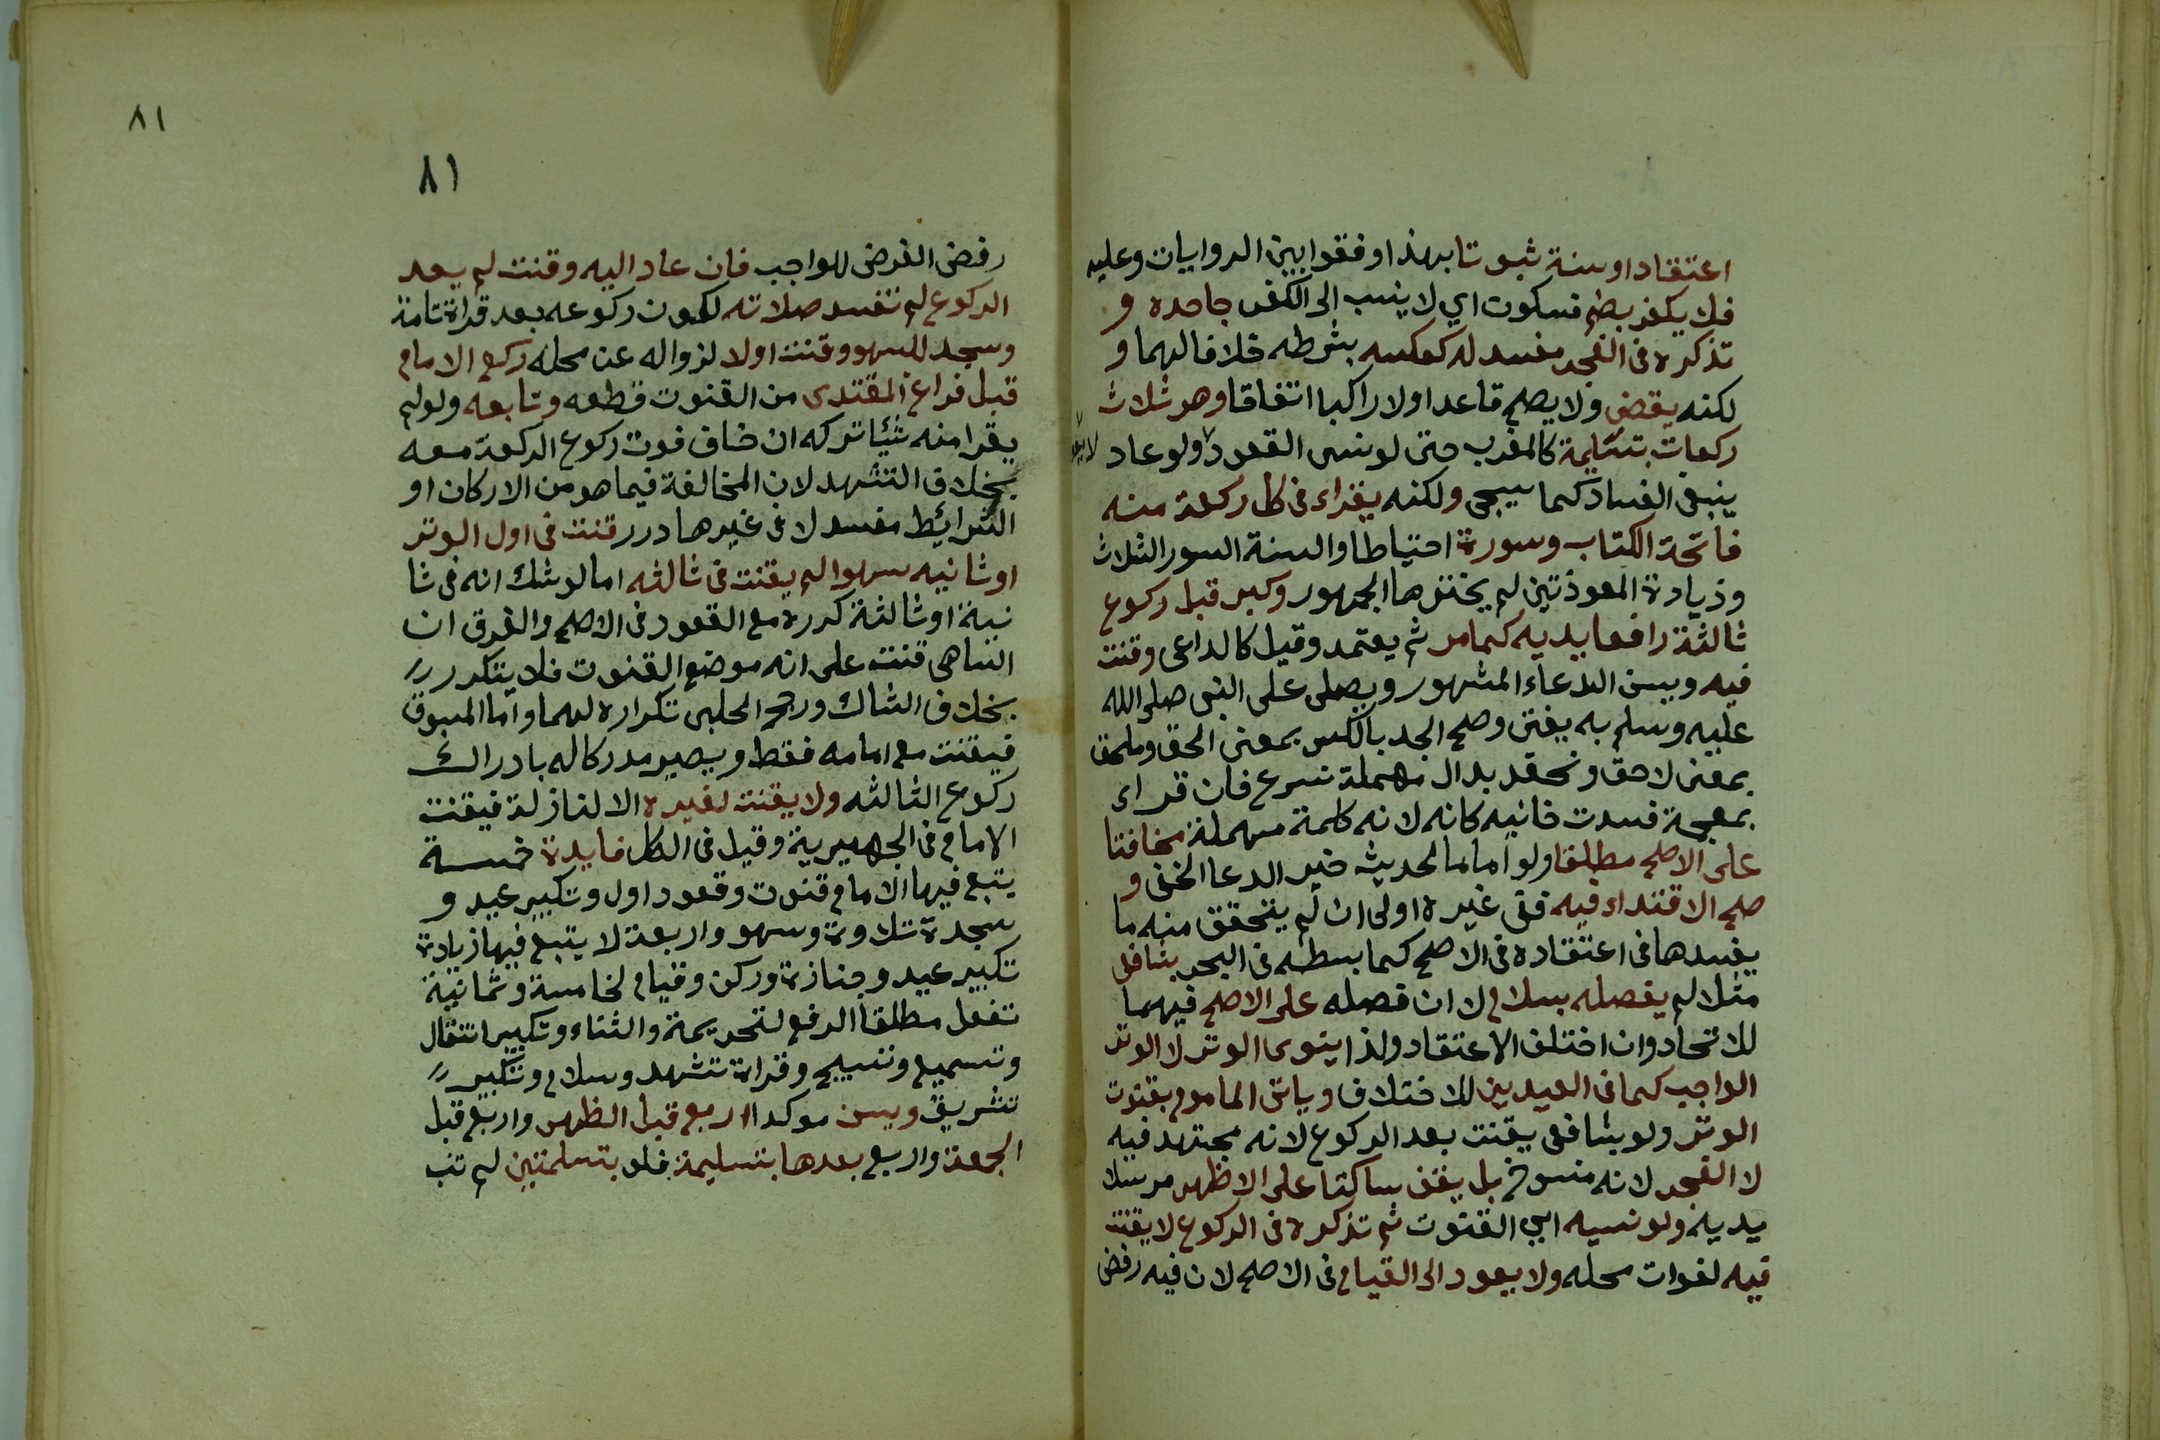 اعتقادا وسنة ثبوتا بهذا وفقوا بين الروايات وعليه
فلا يكفر بضم فسكون اي لا ينسب إلى الكفر جاحده و
تذكره فى الفجر مفسد له كعكسه بشرطه خلافا لهما و
لكنه يقضى ولا يصح قاعدا ولا راكبا اتفاقا وهو ثلاث
ركعات بتسليمة كالمغرب حتى لو نسى القعود لا يعود ولو عاد
ينبغى الفساد كما سيجى ولكنه يقراء فى كل ركعة منه
فاتحة الكتاب وسورة احتياطا والسنة السور الثلاث
وزيادة المعوذتين لم يخترها الجمهور وكبر قبل ركوع
ثالثة رافعا يديه كما مر ثم يعتمد وقيل كالداعى وقنت
فيه ويسن الدعاء المشهور ويصلى على النبى صلى الله
عليه وسلم به يفتى وصح الجد بالكسر بمعنى الحق وملحق
بمعنى لاحق ونحفد بدال مهملة نسرع فان قراء
بمعجمة فسدت خانيه كانه لانه كلمة مهملة مخافتا
على الاصح مطلقا ولو اماما لحديث خير الدعا الخفى و
صح الاقتداء فيه ففى غيره اولى ان لم يتحقق منه ما
يفسدها فى اعتقاده فى الاصح كما بسطه فى البحر بشافعى
مثلا لم يفصله بسلام لا ان فصله على الاصح فيهما
للاتحاد وان اختلف الاعتقاد ولذا ينوى الوتر لا الوتر
الواجب كما فى العيدين للاختلاف وياتى الماموم بقنوت
الوتر ولو بشافعى يقنت بعد الركوع لانه مجتهد فيه
لا الفجر لانه منسوخ بل يقف ساكتا على الاظهر مرسلا
يديه ولو نسيه اي القنوت ثم تذكره فى الركوع لا يقنت
فيه لفوات محله ولا يعود الى القيام فى الاصح لان فيه رفض
٨١
٨١
رفض الفرض للواجب فان عاد اليه وقنت لم يعد
الركوع لم تفسد صلاته لكون ركوعه بعد قراة تامة
وسجد للسهو وقنت اولا لزواله عن محله ركع الامام
قبل فراغ المقتدى من القنوت قطعه وتابعه ولو لم
يقرا منه شيئا تركه ان خاف فوت ركوع الركعة معه
بخلاف التشهد لان المخالفة فيما هو من الاركان او
الشرايط مفسد لا فى غيرها درر قنت فى اول الوتر
او ثانيه سهوا لم يقنت فى ثالثه اما لو شك انه فى ثا
نية او ثالثة كرره مع القعود فى الاصح والفرق ان
الساهى قنت على انه موضع القنوت فلا يتكرر
بخلاف الشاك ورجح الحلبى تكراره لهما واما المسبوق
فيقنت مع امامه فقط ويصير مدركا له بادراك
ركوع الثالثه ولا يقنت لغيره الا لنازلة فيقنت
الامام فى الجهيرية وقيل فى الكل فايدة خمسة
يتبع فيها الامام قنوت وقعود اول وتكبير عيد و
سجدة تلاوة وسهو واربعة لا يتبع فيها زيادة
تكبير عيد وجنازة وركن وقيام لخامسة وثمانية
تفعل مطلقا الرفع لتحريمة والثناء وتكبير انتقال
وتسميع وتسبيح وقراة تشهد وسلام وتكبير
تشريق ويسن موكدا اربع قبل الظهر واربع قبل
الجمعة واربع بعدها بتسليمة فلو بتسلمتين لم تنب